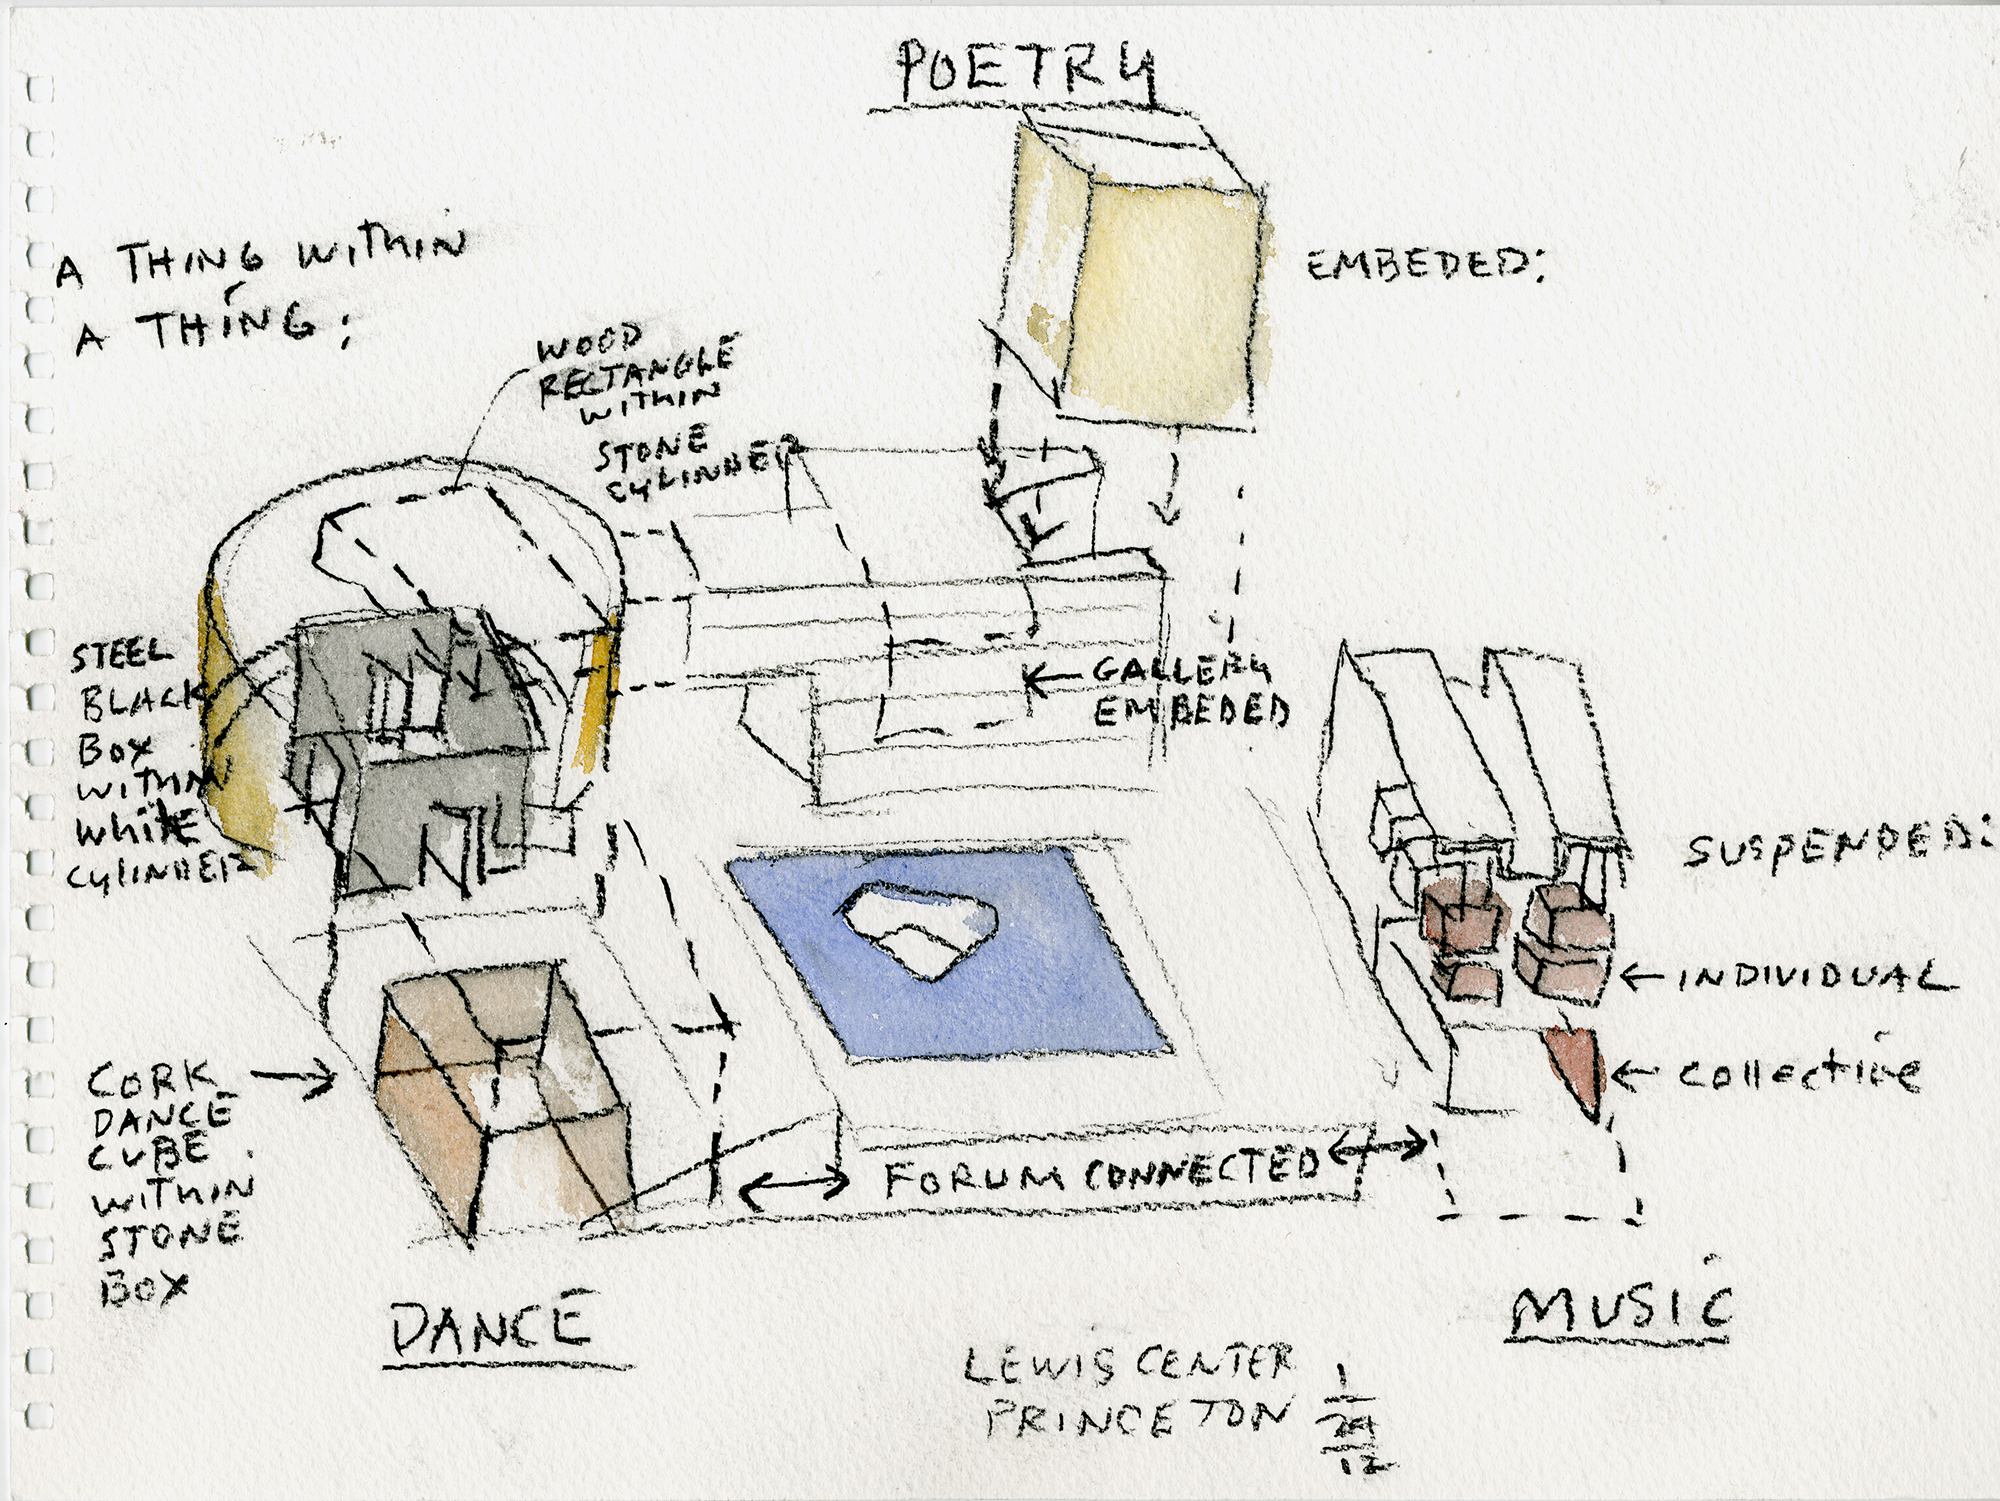 POETRY
A THING WITHIN
A THING;
EMBEDED:
WOOD
RECTANGLE
WITHIN
STONE
CYLINDER
STEEL
BLACK
BOX
WITHIN
WHITE
CYLINDER
← GALLERY
EMBEDED
SUSPENDED:
← INDIVIDUAL
← COLLECTIVE
CORK →
DANCE
CUBE
WITHIN
STONE
BOX
↔ FORUM CONNECTED ↔
DANCE
MUSIC
LEWIS CENTER
PRINCETON
1
29
12